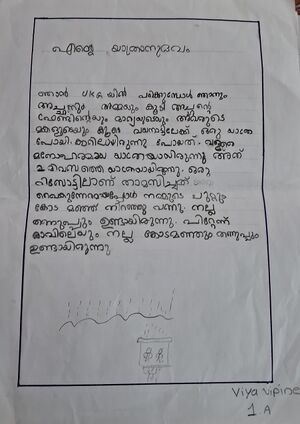 എന്റെ യാത്രാനുഭവം
ഞാൻ UKG യിൽ പഠിക്കുമ്പോൾ ഞാനും
അച്ഛനും അമ്മയും കൂടി അച്ഛന്റെ
ഫ്രണ്ടിന്റെയും ഭാര്യയുടെയും അവരുടെ
മക്കളുടെയും കൂടെ വയനാട്ടിലേക്ക് ഒരു യാത്ര
പോയി. കാറിലായിരുന്നു പോയത്. വളരെ
മനോഹരമായ യാത്രയായിരുന്നു അത്
2 ദിവസത്തെ യാത്രയായിരുന്നു. ഒരു
റിസോട്ടിലാണ് താമസിച്ചത്
വൈകുന്നേരമായപ്പോൾ നമ്മുടെ ചുറ്റും
കോട മഞ്ഞ് നിറഞ്ഞു വന്നു. നല്ല
തണുപ്പും ഉണ്ടായിരുന്നു. പിറ്റേന്ന്
രാവിലെയും നല്ല കോടമഞ്ഞും തണുപ്പും
ഉണ്ടായിരുന്നു
Viya Vipine
1 A